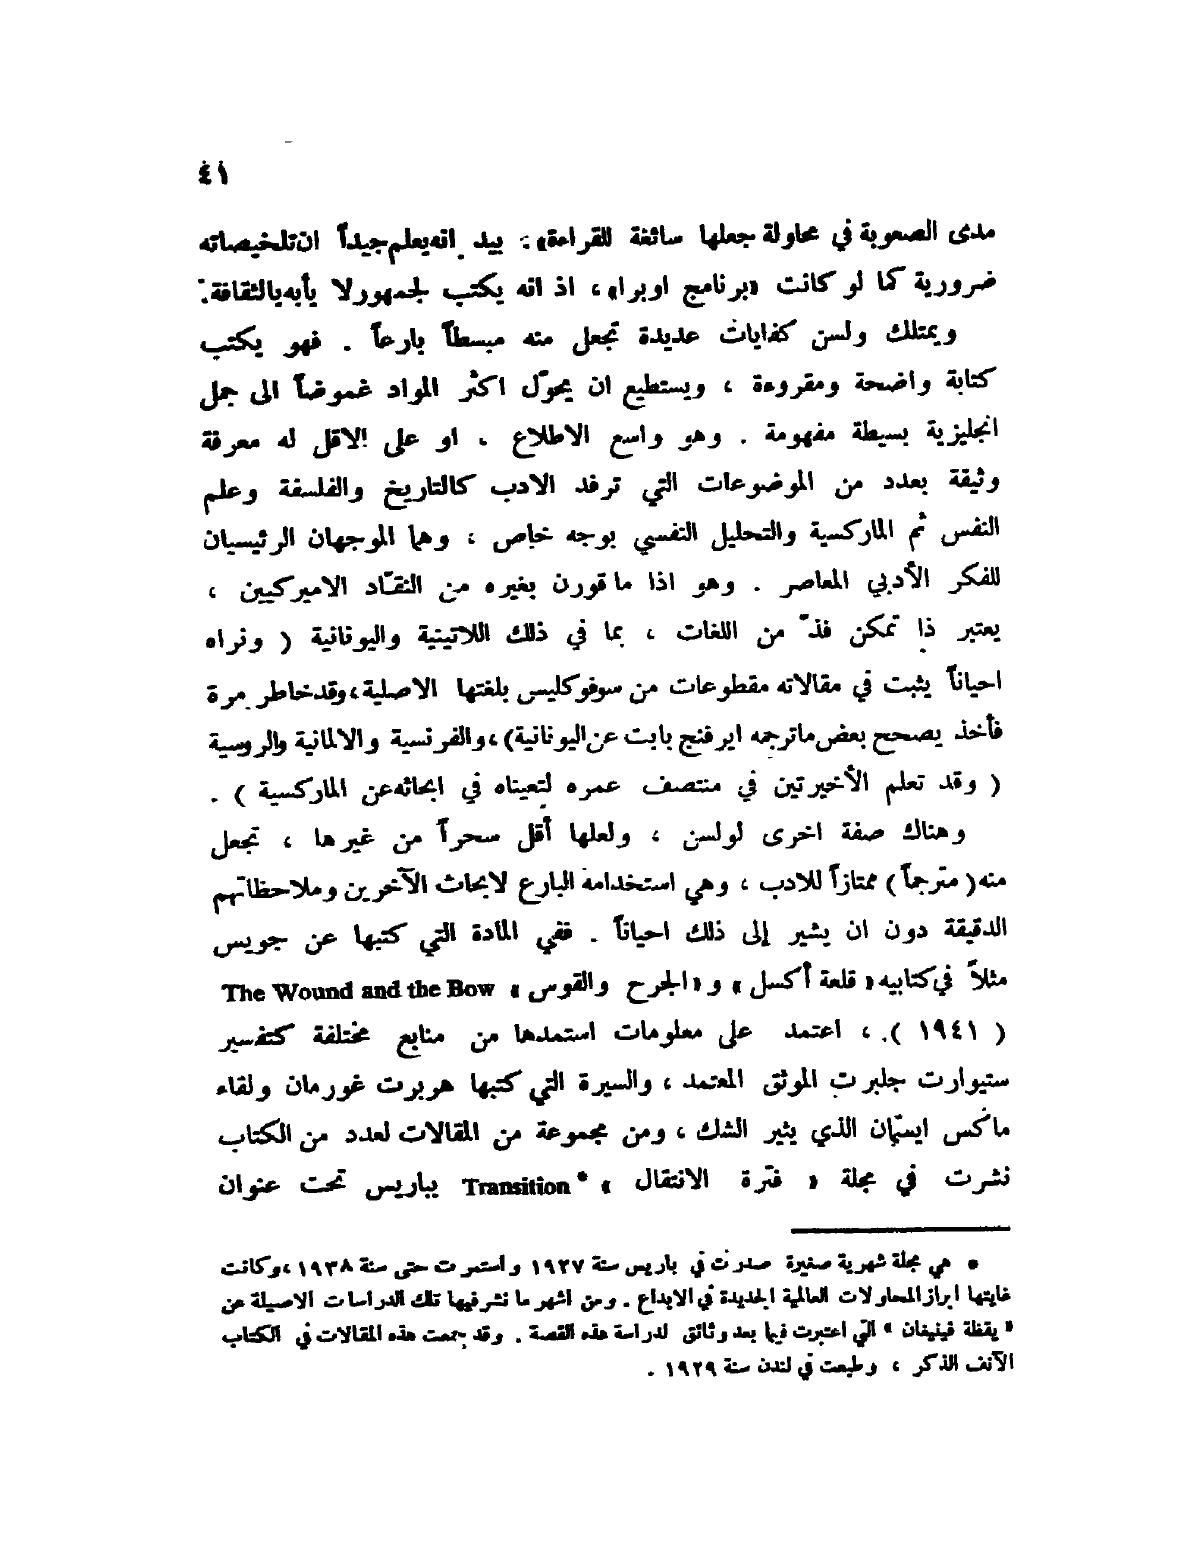 ٤١
مدى الصعوبة في محاولة جعلها سائغة للقراءة» : بيد انه يعلم جيداً ان تلخيصاته
ضرورية كما لو كانت «برنامج اوبرا» ، اذ انه يكتب لجمهور لا يأبه بالثقافة .
ويمتلك ولسن كفايات عديدة تجعل منه مبسطاً بارعاً . فهو يكتب
كتابة واضحة ومقروءة ، ويستطيع ان يحوّل اكثر المواد غموضاً الى جمل
انجليزية بسيطة مفهومة . وهو واسع الاطلاع ، او على الاقل له معرفة
وثيقة بعدد من الموضوعات التي ترفد الادب كالتاريخ والفلسفة وعلم
النفس ثم الماركسية والتحليل النفسي بوجه خاص ، وهما الموجهان الرئيسيان
للفكر الأدبي المعاصر . وهو اذا ما قورن بغيره من النقّاد الاميركيين ،
يعتبر ذا تمكن فذّ من اللغات ، بما في ذلك اللاتينية واليونانية ( ونراه
احياناً يثبت في مقالاته مقطوعات من سوفوكليس بلغتها الاصلية ، وقد خاطر مرة
فأخذ يصحح بعض ماترجمه ايرفنج بابت عن اليونانية) ، والفرنسية والالمانية والروسية
( وقد تعلم الأخيرتين في منتصف عمره لتعيناه في ابحاثه عن الماركسية ) .
وهناك صفة اخرى لولسن ، ولعلها أقل سحراً من غيرها ، تجعل
منه ( مترجماً ) ممتازاً للادب ، وهي استخدامه البارع لابحاث الآخرين وملاحظاتهم
الدقيقة دون ان يشير إلى ذلك احياناً . ففي المادة التي كتبها عن جويس
مثلاً في كتابيه « قلعة أكسل » و « الجرح والقوس » The Wound and the Bow
( ١٩٤١ ) ، اعتمد على معلومات استمدها من منابع مختلفة كتفسير
ستيوارت جلبرت الموثق المعتمد ، والسيرة التي كتبها هربرت غورمان ولقاء
ماكس ايستمان الذي يثير الشك ، ومن مجموعة من المقالات لعدد من الكتاب
نشرت في مجلة « فترة الانتقال » Transition * بباريس تحت عنوان
* هي مجلة شهرية صغيرة صدرت في باريس سنة ١٩٢٧ واستمرت حتى سنة ١٩٣٨ ، وكانت
غايتها ابراز المحاولات العالمية الجديدة في الابداع . ومن اشهر ما نشر فيها تلك الدراسات الاصيلة عن
« يقظة فينيغان » التي اعتبرت فيما بعد وثائق لدراسة هذه القصة . وقد جمعت هذه المقالات في الكتاب
الآنف الذكر ، وطبعت في لندن سنة ١٩٢٩ .